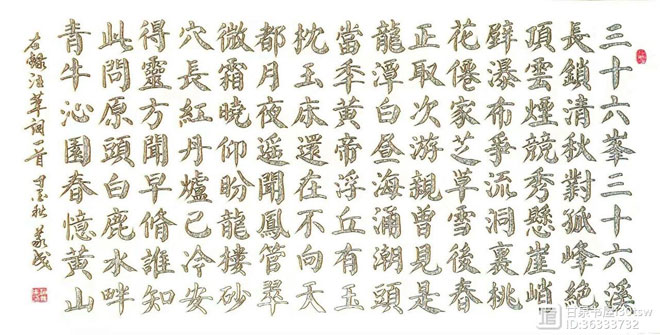 三十六峯三十六溪
長鎖清秋對孤峰絕
頂雲煙競秀懸崖峭
壁瀑布爭流洞裏桃
花僊家芝草雪後春
正取次游親曾見是
龍潭白晝海涌潮頭
當秊黃帝浮丘有玉
枕玉床還在不向天
都月夜遥聞鳳管翠
微霜曉仰盼龍樓砂
穴長紅丹爐已冷安
得靈方聞早脩誰知
此問原頭白鹿水畔
青牛沁園春憶黃山
右錄汪莘詞一首
ID:36333732